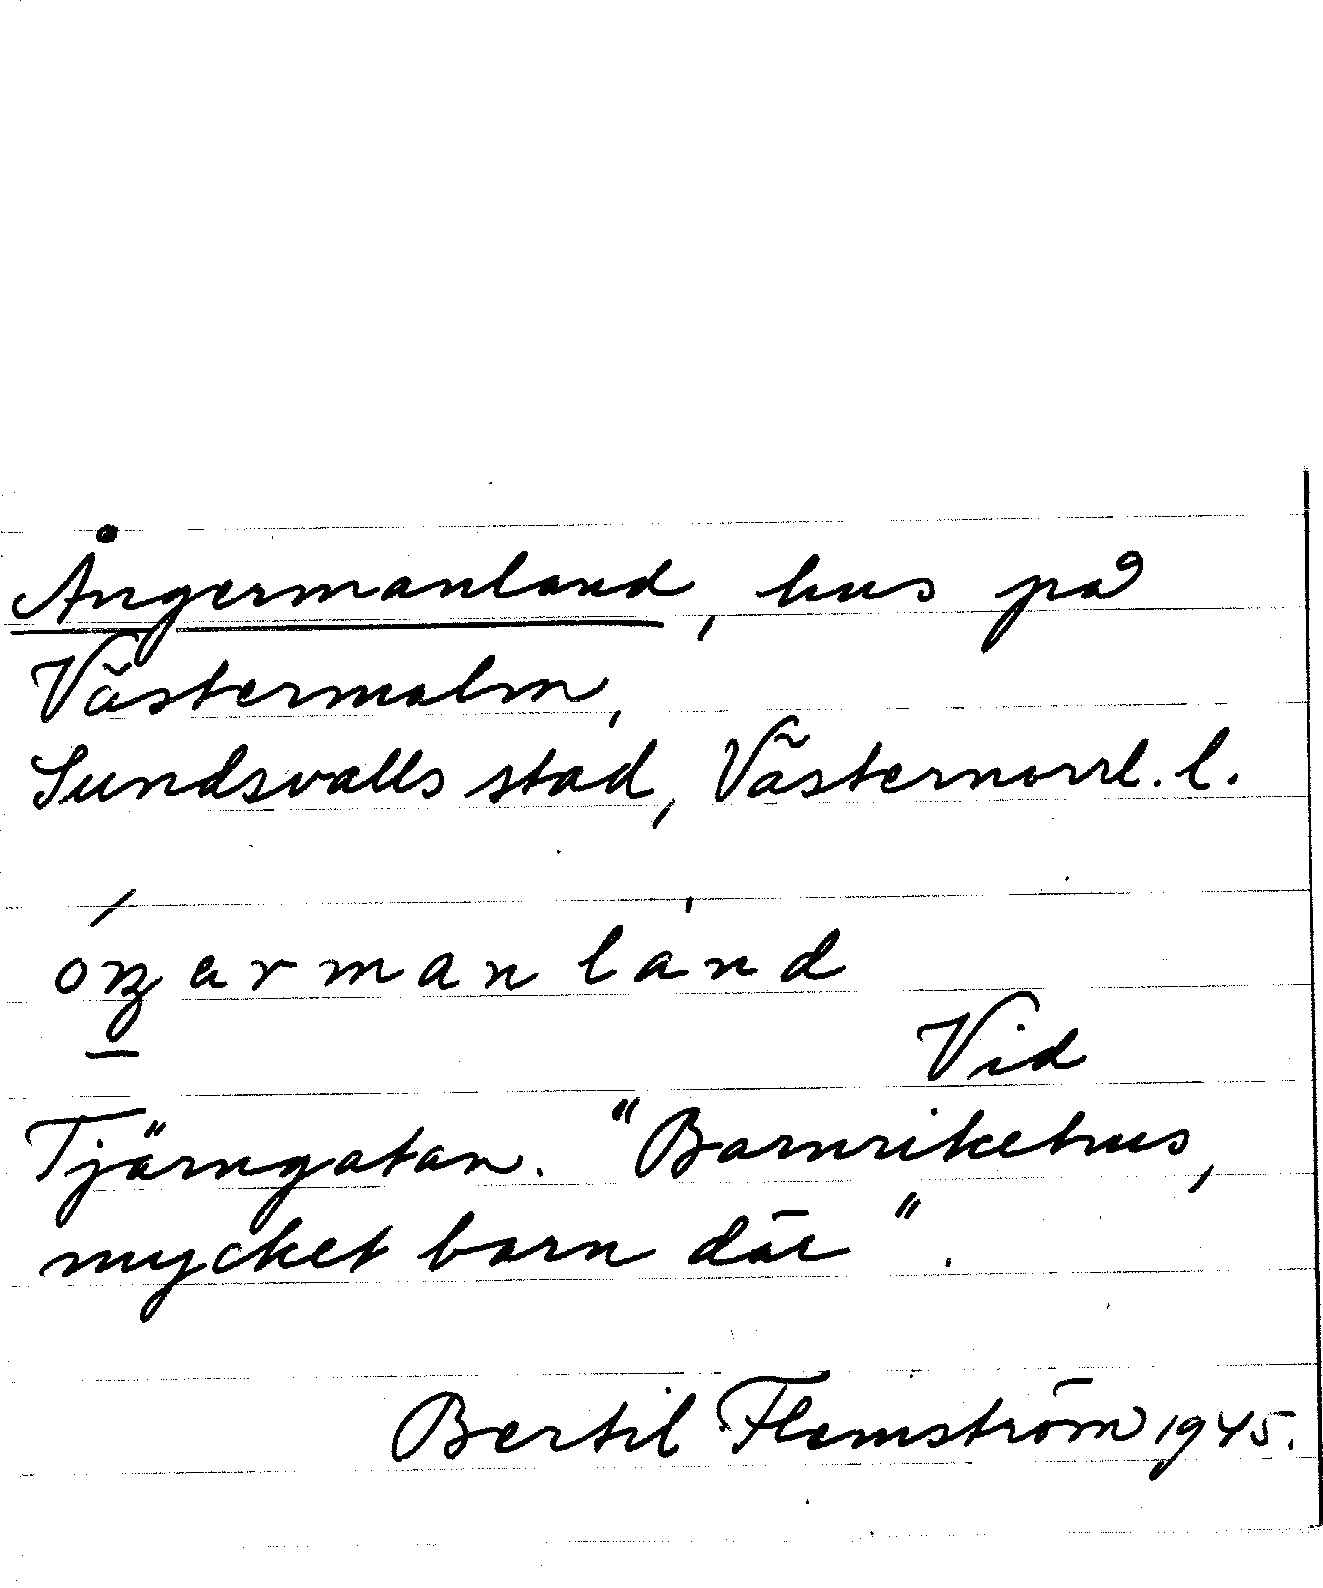 Ångermanland, hus på
Västermalm,
Sundsvalls stad, Västernorrl. l.
óŋ̱ermanlánd
Vid
Tjärngatan. "Barnrikehus,
mycket barn där".
Bertil Flemström 1945.